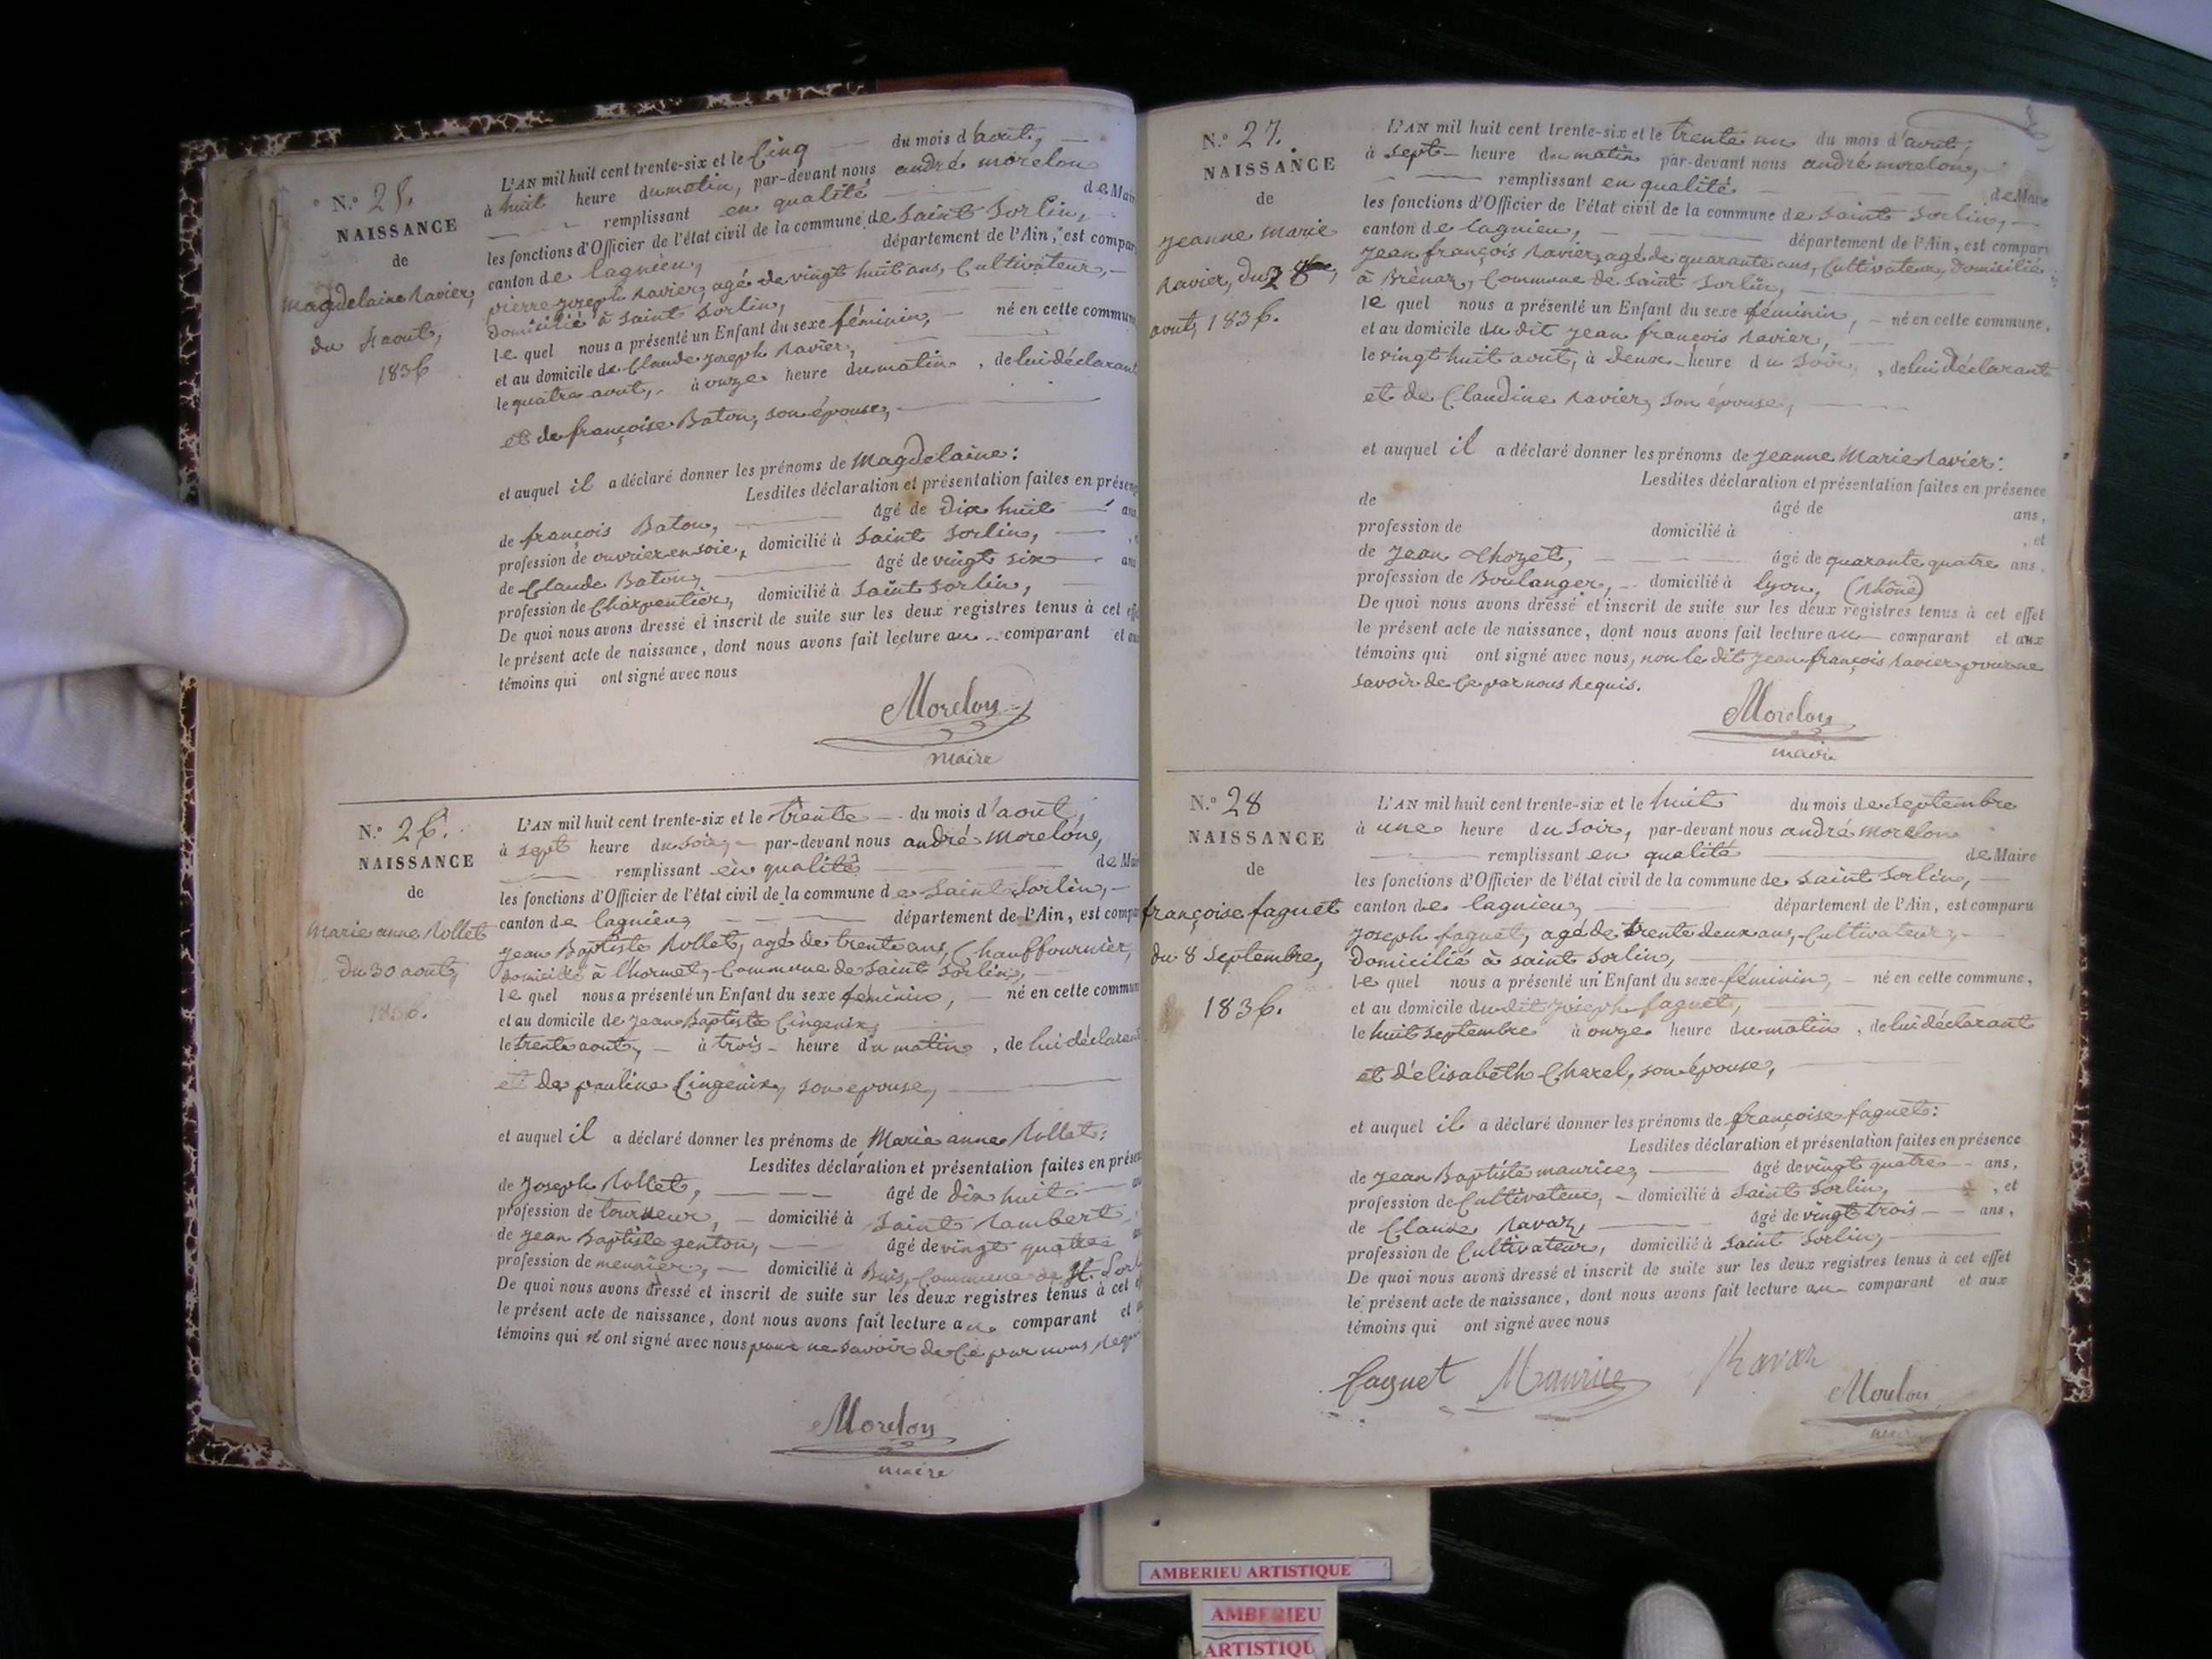 N.° 25.
NAISSANCE
de
magdelaine Ravier,
du 4 aout,
1836
L'AN mil huit cent trente-six et le Cinq du mois d'août,
à huit heure du matin, par-devant nous andré morelon
remplissant en qualité de Mair
les fonctions d'Officier de l'état civil de la commune de Saint Sorlin,
canton de lagnieu, département de l'Ain, est compar
pierre joseph Ravier, agé de vingt huit ans, Cultivateur,
domicilié à Saint Sorlin,
le quel nous a présenté un Enfant du sexe féminin, né en cette commun
et au domicile de Claude joseph Ravier,
le quatre aout, à onze heure du matin, de lui déclarant
et de françoise Baton, son épouse,
et auquel il a déclaré donner les prénoms de Magdelaine:
Lesdites déclaration et présentation faites en présen
de françois Baton, âgé de Dix huit ans
profession de ouvrier en soie, domicilié à Saint Sorlin,
de Claude Baton, âgé de vingt six ans
profession de Charpentier, domicilié à Saint Sorlin,
De quoi nous avons dressé et inscrit de suite sur les deux registres tenus à cet eff
le présent acte de naissance, dont nous avons fait lecture au comparant et au
témoins qui ont signé avec nous
Morelon
maire
N.° 26.
NAISSANCE
de
Marie anne Rollet
du 30 aout,
1836.
L'AN mil huit cent trente-six et le trente du mois d'aout,
à sept heure du soir, par-devant nous andré Morelon,
remplissant en qualité de Mair
les fonctions d'Officier de l'état civil de la commune de Saint Sorlin,
canton de lagnieu, département de l'Ain, est compar
jean Baptiste Rollet, agé de trente ans, Chauffournier,
domicilié à l'hormet, Commune de Saint Sorlin,
le quel nous a présenté un Enfant du sexe féminin, né en cette commun
et au domicile de jean Baptiste Cingenix,
le trente aout, à trois heure du matin, de lui déclarant
et de pauline Cingenix, son épouse,
et auquel il a déclaré donner les prénoms de Marie anne Rollet:
Lesdites déclaration et présentation faites en présen
de joseph Rollet, âgé de dix huit
profession de tourneur, domicilié à Saint Rambert
de jean Baptiste genton, âgé de vingt quatre
profession de meunier, domicilié à Buis, Commune de St. Sorl
De quoi nous avons dressé et inscrit de suite sur les deux registres tenus à cet
le présent acte de naissance, dont nous avons fait lecture au comparant et
témoins qui n'ont signé avec nous pour ne savoir de ce par nous requi
Morelon
maire
N.° 27.
NAISSANCE
de
jeanne Marie
Ravier, du 28,
aout, 1836.
L'AN mil huit cent trente-six et le trente un du mois d'août,
à sept heure du matin par-devant nous andré morelon,
remplissant en qualité de Maire
les fonctions d'Officier de l'état civil de la commune de Saint Sorlin,
canton de lagnieu, département de l'Ain, est compar
jean françois Ravier, agé de quarante ans, Cultivateur, domicilié
à Brénaz, Commune de Saint Sorlin,
le quel nous a présenté un Enfant du sexe féminin, né en cette commune,
et au domicile du dit jean françois Ravier,
le vingt huit aout, à deux heure du soir, de lui déclarant
et de Claudine Ravier, son épouse,
et auquel il a déclaré donner les prénoms de jeanne Marie Ravier:
Lesdites déclaration et présentation faites en présence
de âgé de ans,
profession de domicilié à , et
de jean Thozet, âgé de quarante quatre ans,
profession de Boulanger, domicilié à lyon, (Rhône)
De quoi nous avons dressé et inscrit de suite sur les deux registres tenus à cet effet
le présent acte de naissance, dont nous avons fait lecture au comparant et aux
témoins qui ont signé avec nous, non le dit jean françois Ravier pour ne
savoir de ce par nous Requis.
Morelon
maire
N.° 28
NAISSANCE
de
françoise faguet
du 8 Septembre,
1836.
L'AN mil huit cent trente-six et le huit du mois de septembre
à une heure du soir, par-devant nous andré morelon
remplissant en qualité de Maire
les fonctions d'Officier de l'état civil de la commune de saint Sorlin,
canton de lagnieu, département de l'Ain, est comparu
joseph faguet, agé de trente deux ans, Cultivateur,
domicilié à saint Sorlin,
le quel nous a présenté un Enfant du sexe féminin, né en cette commune,
et au domicile du dit joseph faguet,
le huit septembre à onze heure du matin, de lui déclarant
et d'élisabeth Charel, son épouse,
et auquel il a déclaré donner les prénoms de françoise faguet:
Lesdites déclaration et présentation faites en présence
de jean Baptiste maurice, âgé de vingt quatre ans,
profession de Cultivateur, domicilié à saint Sorlin, , et
de Claude Ravaz, âgé de vingt trois ans,
profession de Cultivateur, domicilié à saint Sorlin,
De quoi nous avons dressé et inscrit de suite sur les deux registres tenus à cet effet
le présent acte de naissance, dont nous avons fait lecture au comparant et aux
témoins qui ont signé avec nous
faguet Maurice Ravaz
Morelon
AMBERIEU ARTISTIQUE
AMBERIEU
ARTISTIQU